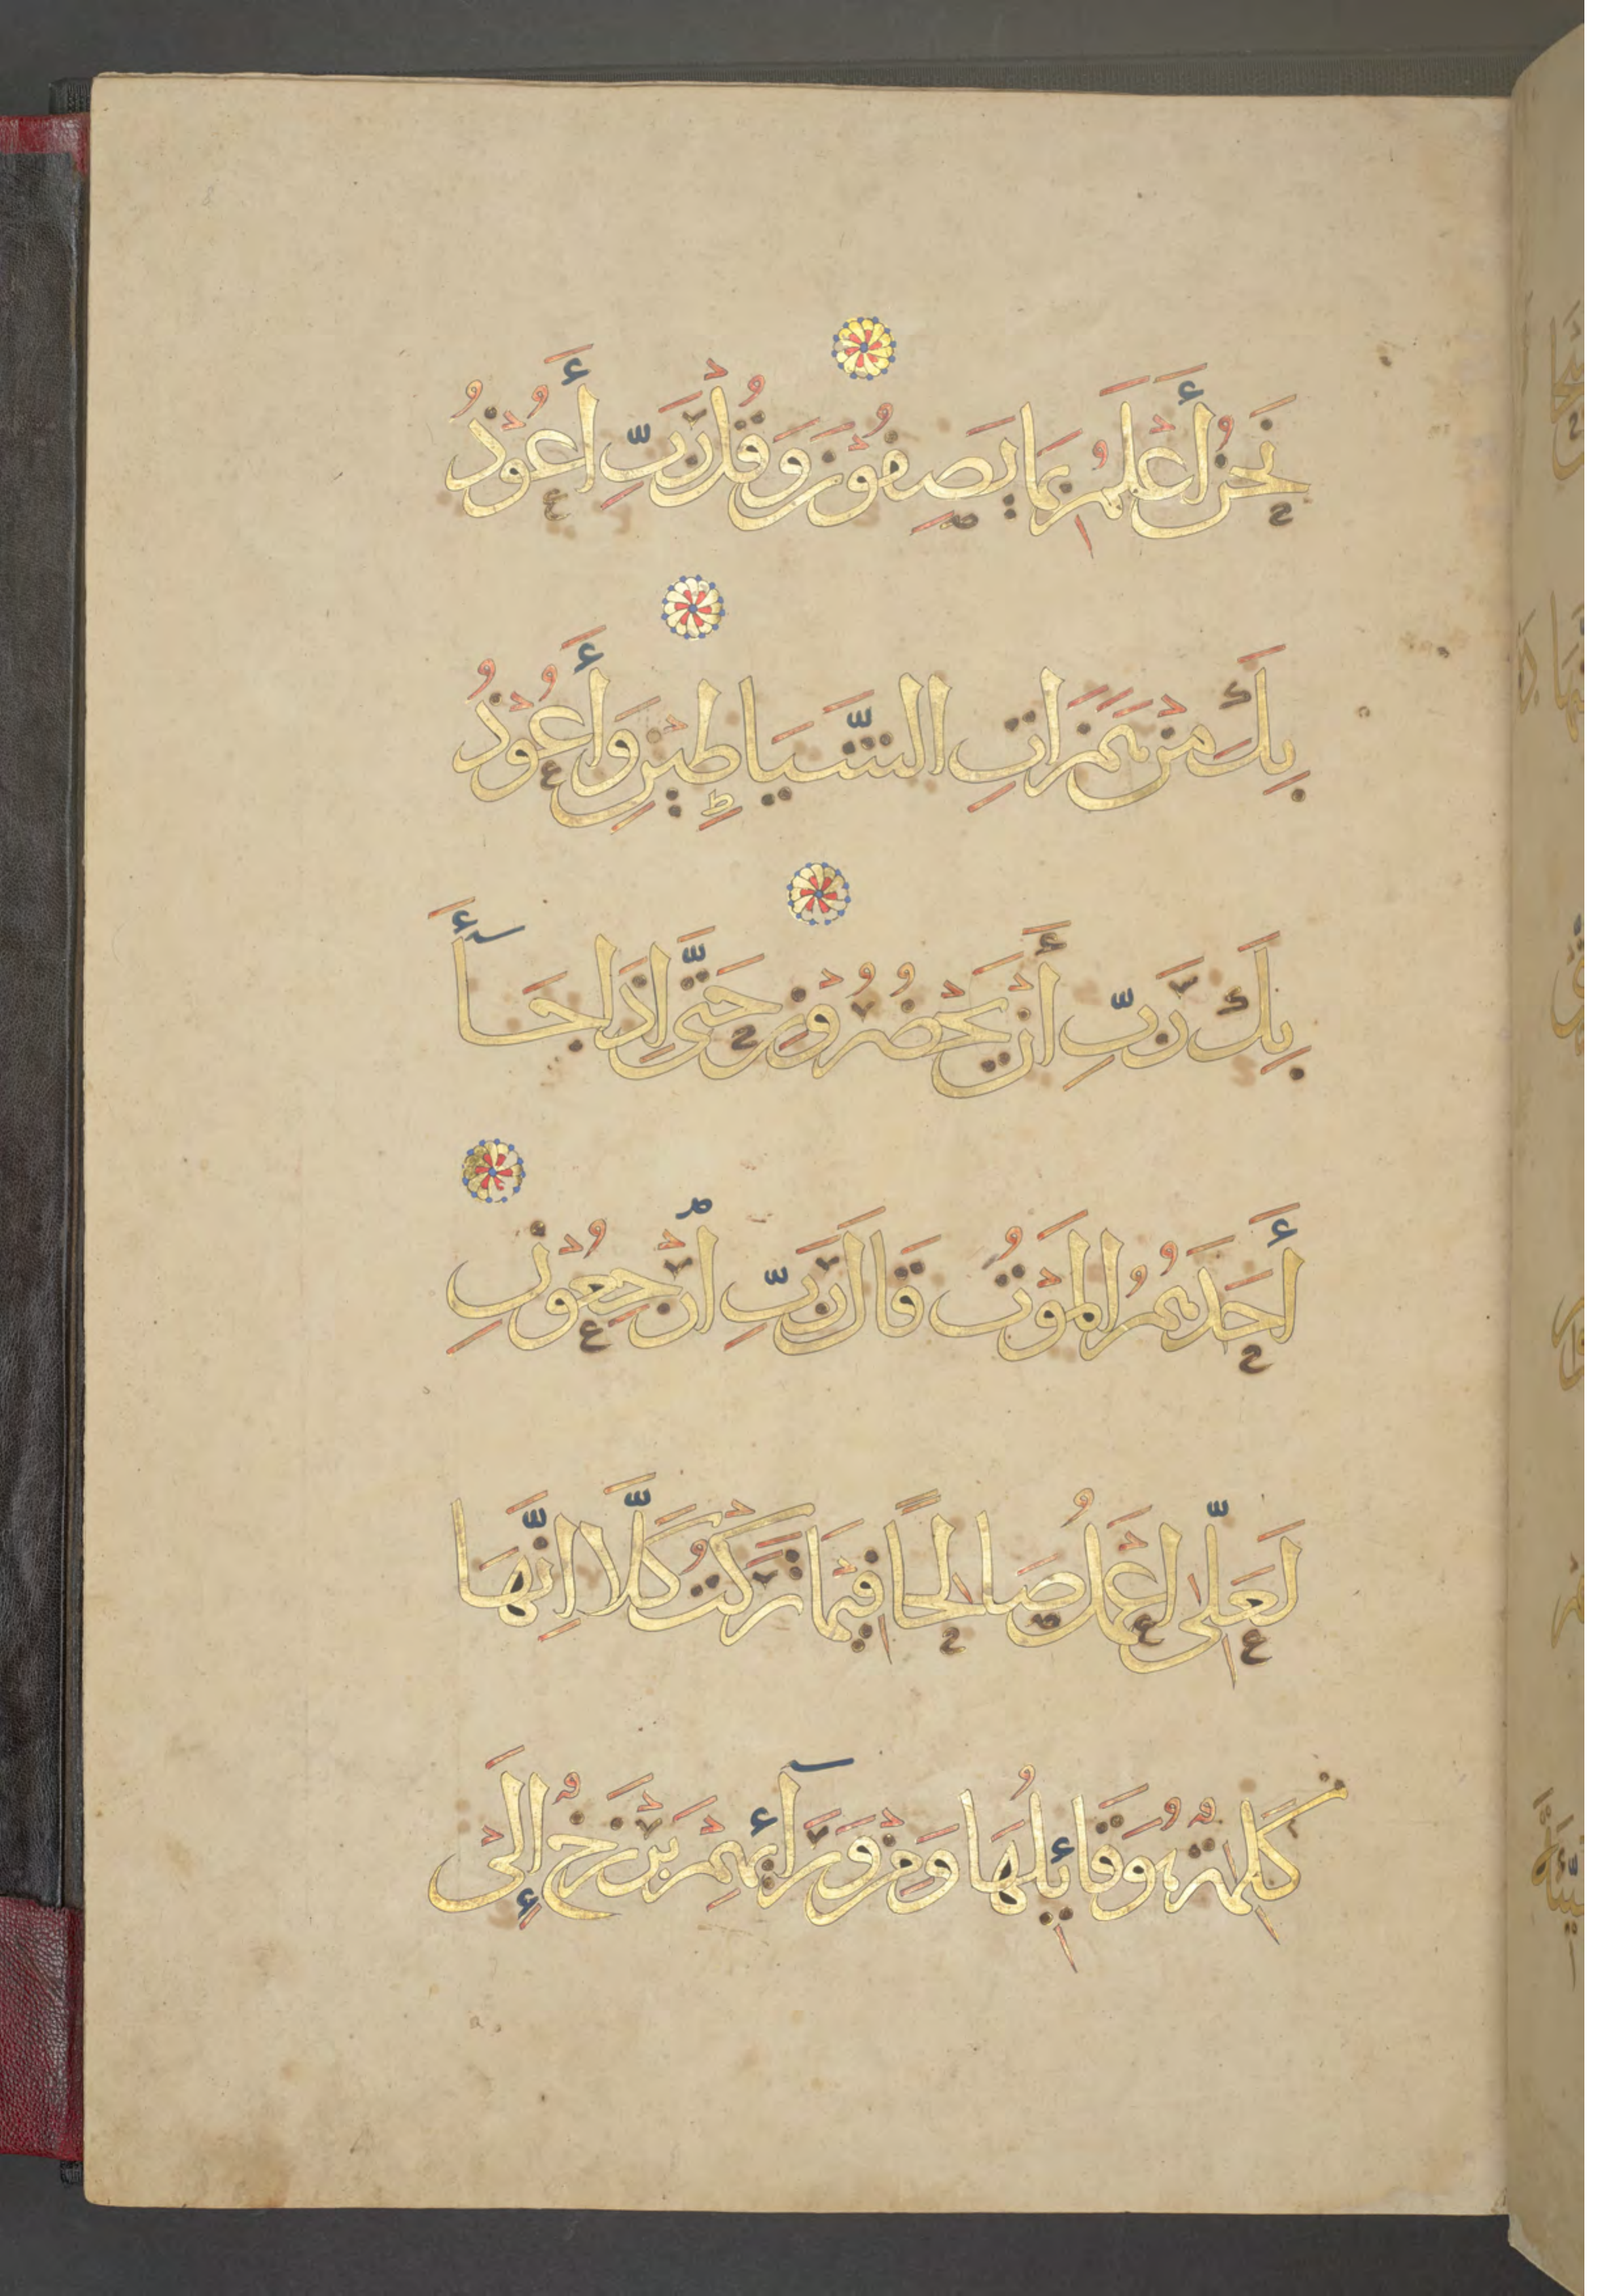 نَحْنُ أَعْلَمُ بِمَا يَصِفُونَ وَقُلْ رَبِّ أَعُوذُ
بِكَ مِنْ هَمَزَاتِ الشَّيَاطِينِ وَأَعُوذُ
بِكَ رَبِّ أَنْ يَحْضُرُونِ حَتَّى إِذَا جَآ
أَحَدَهُمُ الْمَوْتُ قَالَ رَبِّ ارْجِعُونِ
لَعَلِّى أَعْمَلُ صَالِحًا فِيمَا تَرَكْتُ كَلَّا إِنَّهَا
كَلِمَةٌ هُوَ قَائِلُهَا وَمِنْ وَرَآئِهِمْ بَرْزَخٌ إِلَى